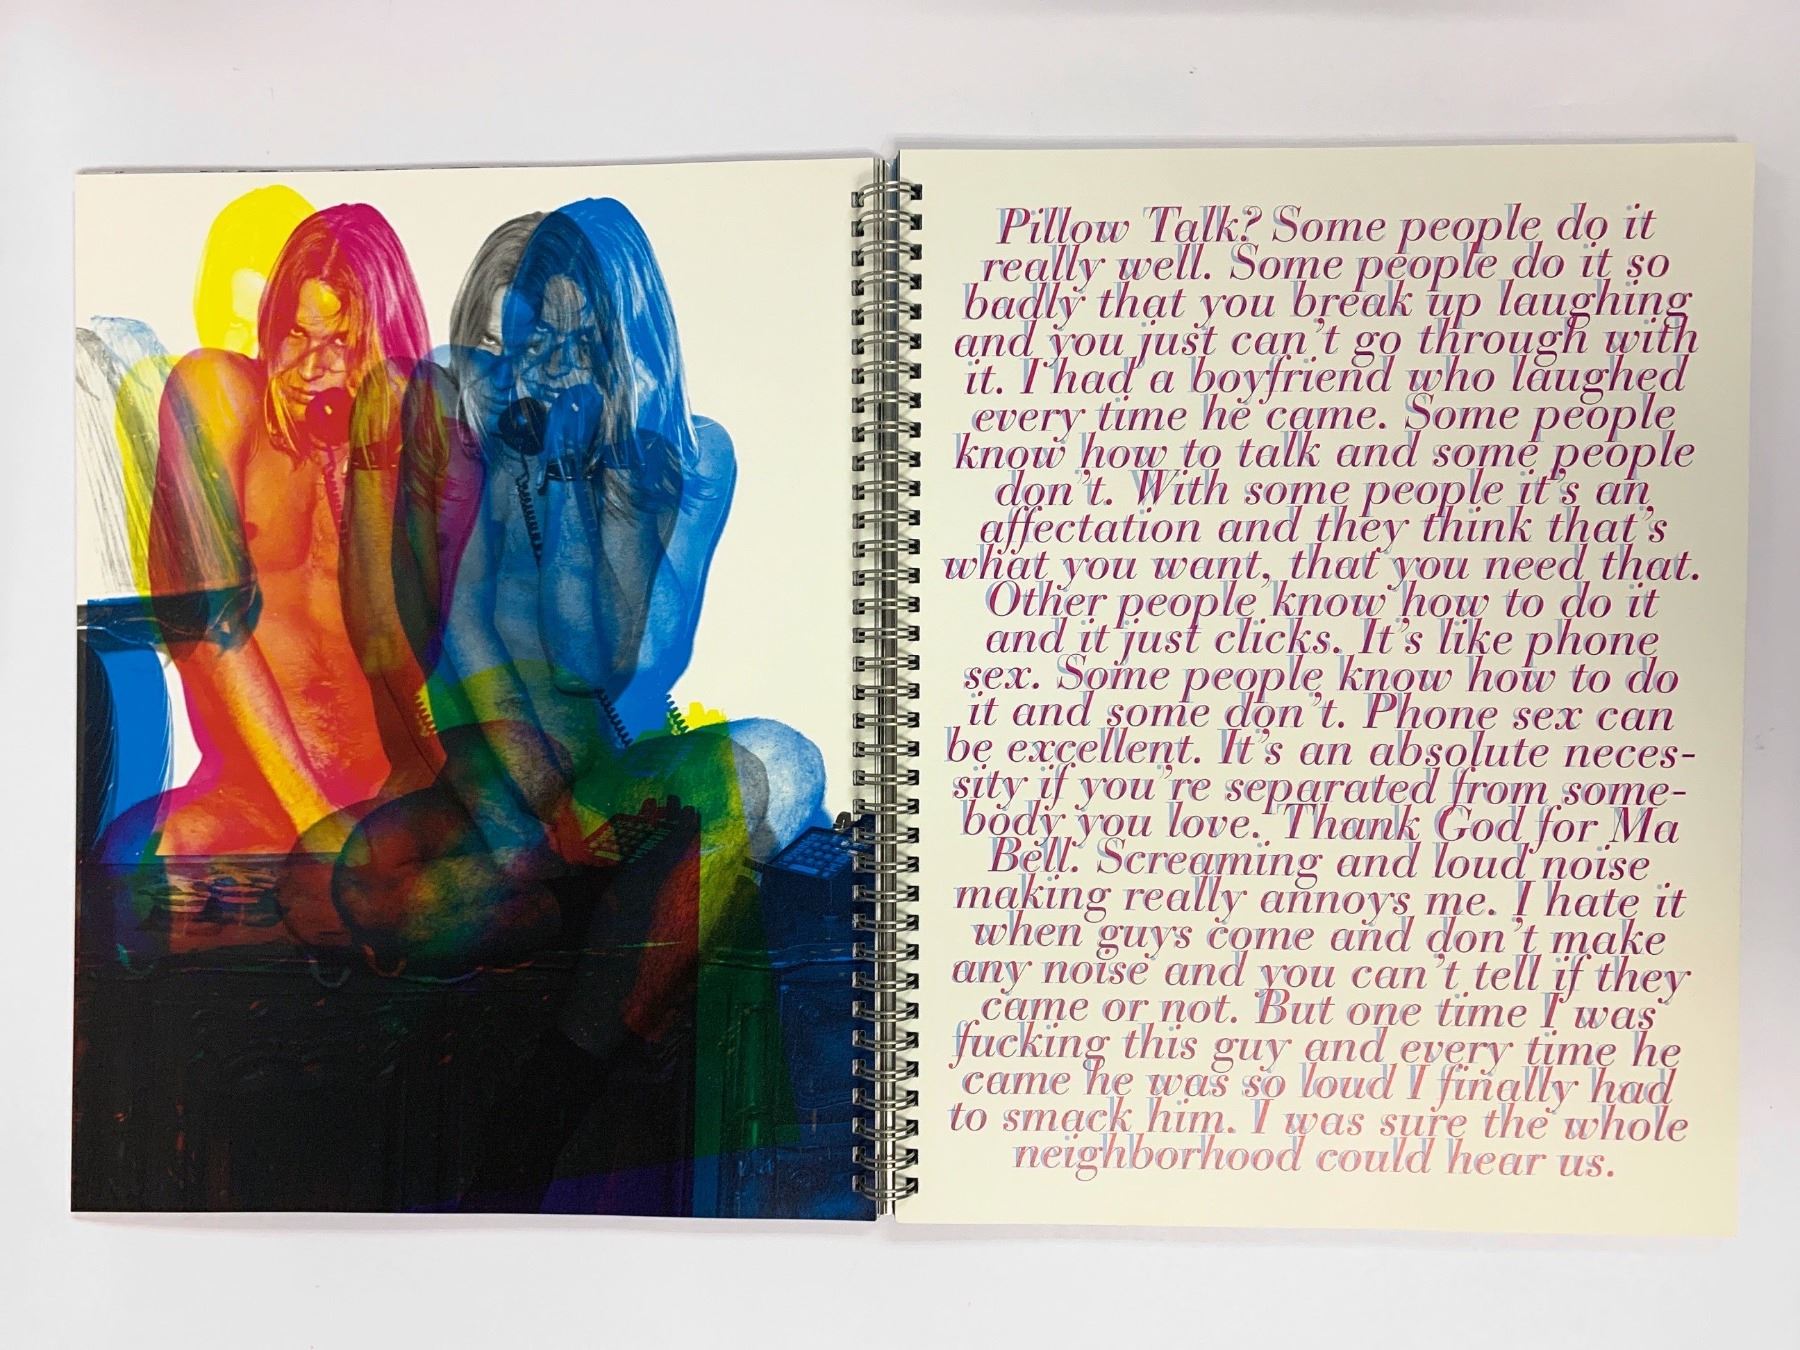 Pillow Talk? Some people do it
really well. Some people do it so
badly that you break up laughing
and you just can't go through with
it. I had a boyfriend who laughed
every time he came. Some people
know how to talk and some people
don't. With some people it's an
affectation and they think that's
what you want, that you need that.
Other people know how to do it
and it just clicks. It's like phone
sex. Some people know how to do
it and some don't. Phone sex can
be excellent. It's an absolute neces-
sity if you're separated from some-
body you love. Thank God for Ma
Bell. Screaming and loud noise
making really annoys me. I hate it
when guys come and don't make
any noise and you can't tell if they
came or not. But one time I was
fucking this guy and every time he
came he was so loud I finally had
to smack him. I was sure the whole
neighborhood could hear us.